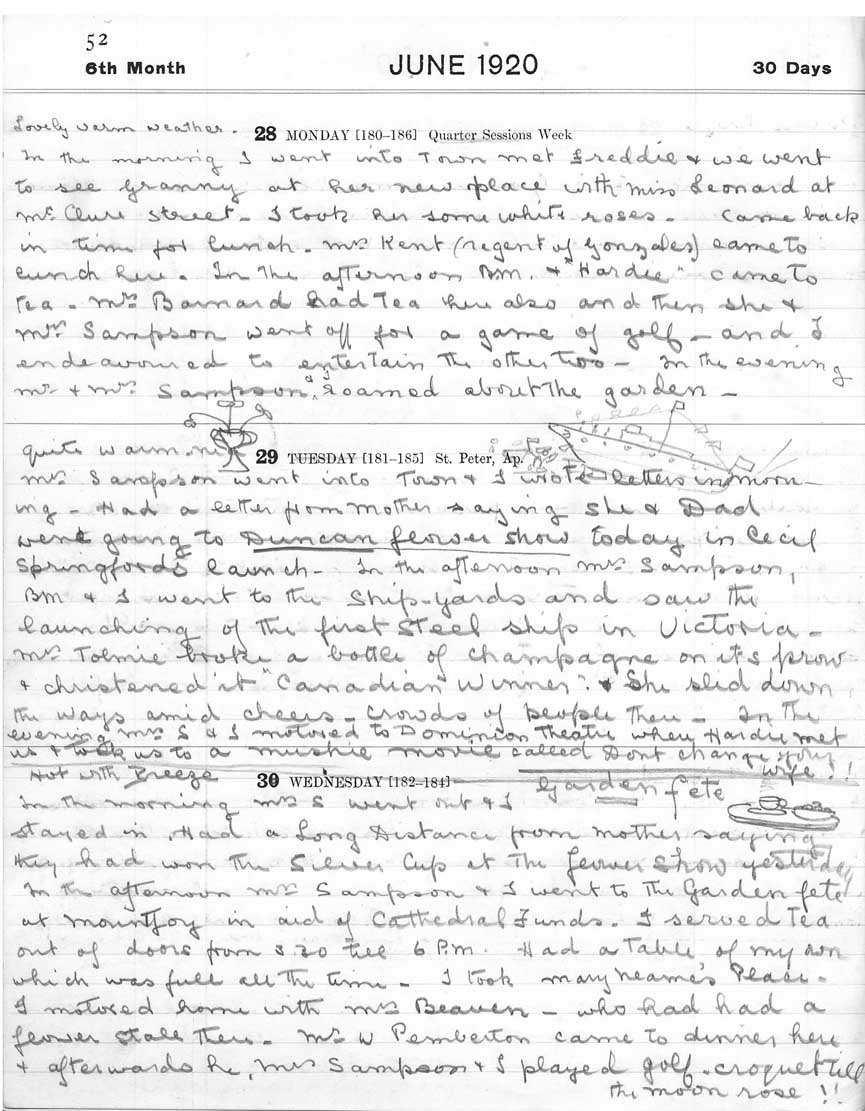 52
6th Month JUNE 1920 30 Days
Lovely warm weather. 28 MONDAY [180–186] Quarter Sessions Week
In the morning I went into Town met Freddie & we went
to see Granny at her new place with Miss Leonard at
McClure Street. I took her some white roses. Came back
in time for lunch. Mrs Kent (regent of Gonzales) came to
lunch here. In the afternoon BM. & "Hardie" came to
tea. Mrs Barnard had Tea here also and then she &
Mrs Sampson went off for a game of golf – and I
endeavoured to entertain the other two – In the evening
Mr & Mrs Sampson & I roamed about the garden –
quite warm. 29 TUESDAY [181–185] St. Peter, Ap.
Mrs Sampson went into Town & I wrote letters in morn-
ing – Had a letter from Mother saying she & Dad
were going to Duncan flower show today in Cecil
Springford's launch – In the afternoon Mrs Sampson,
BM & I went to the Ship-yards and saw the
launching of the first steel ship in Victoria –
Mrs Tolmie broke a bottle of champagne on its prow
& christened it "Canadian Winner". & She slid down
the ways amid cheers – Crowds of people there – In the
evening Mrs S & I motored to Dominion Theatre where Hardie met
us & took us to a mushie movie called Dont change your
wife!!
Hot with Breeze 30 WEDNESDAY [182–184] Garden fete
In the morning Mrs S went out & I
stayed in. Had a Long Distance from Mother saying
they had won the Silver Cup at the flower show yesterday
In the afternoon Mrs Sampson & I went to the Garden fete
at Mountjoy in aid of Cathedral Funds. I served Tea
out of doors from 3.30 till 6 P.M. Had a Table of my own
which was full all the time – I took Mary Neame's Place.
I motored home with Mrs Beaven – who had had a
flower stall there. Mr W Pemberton came to dinner here
& afterwards he, Mrs Sampson & I played golf-croquet till
the moon rose !!